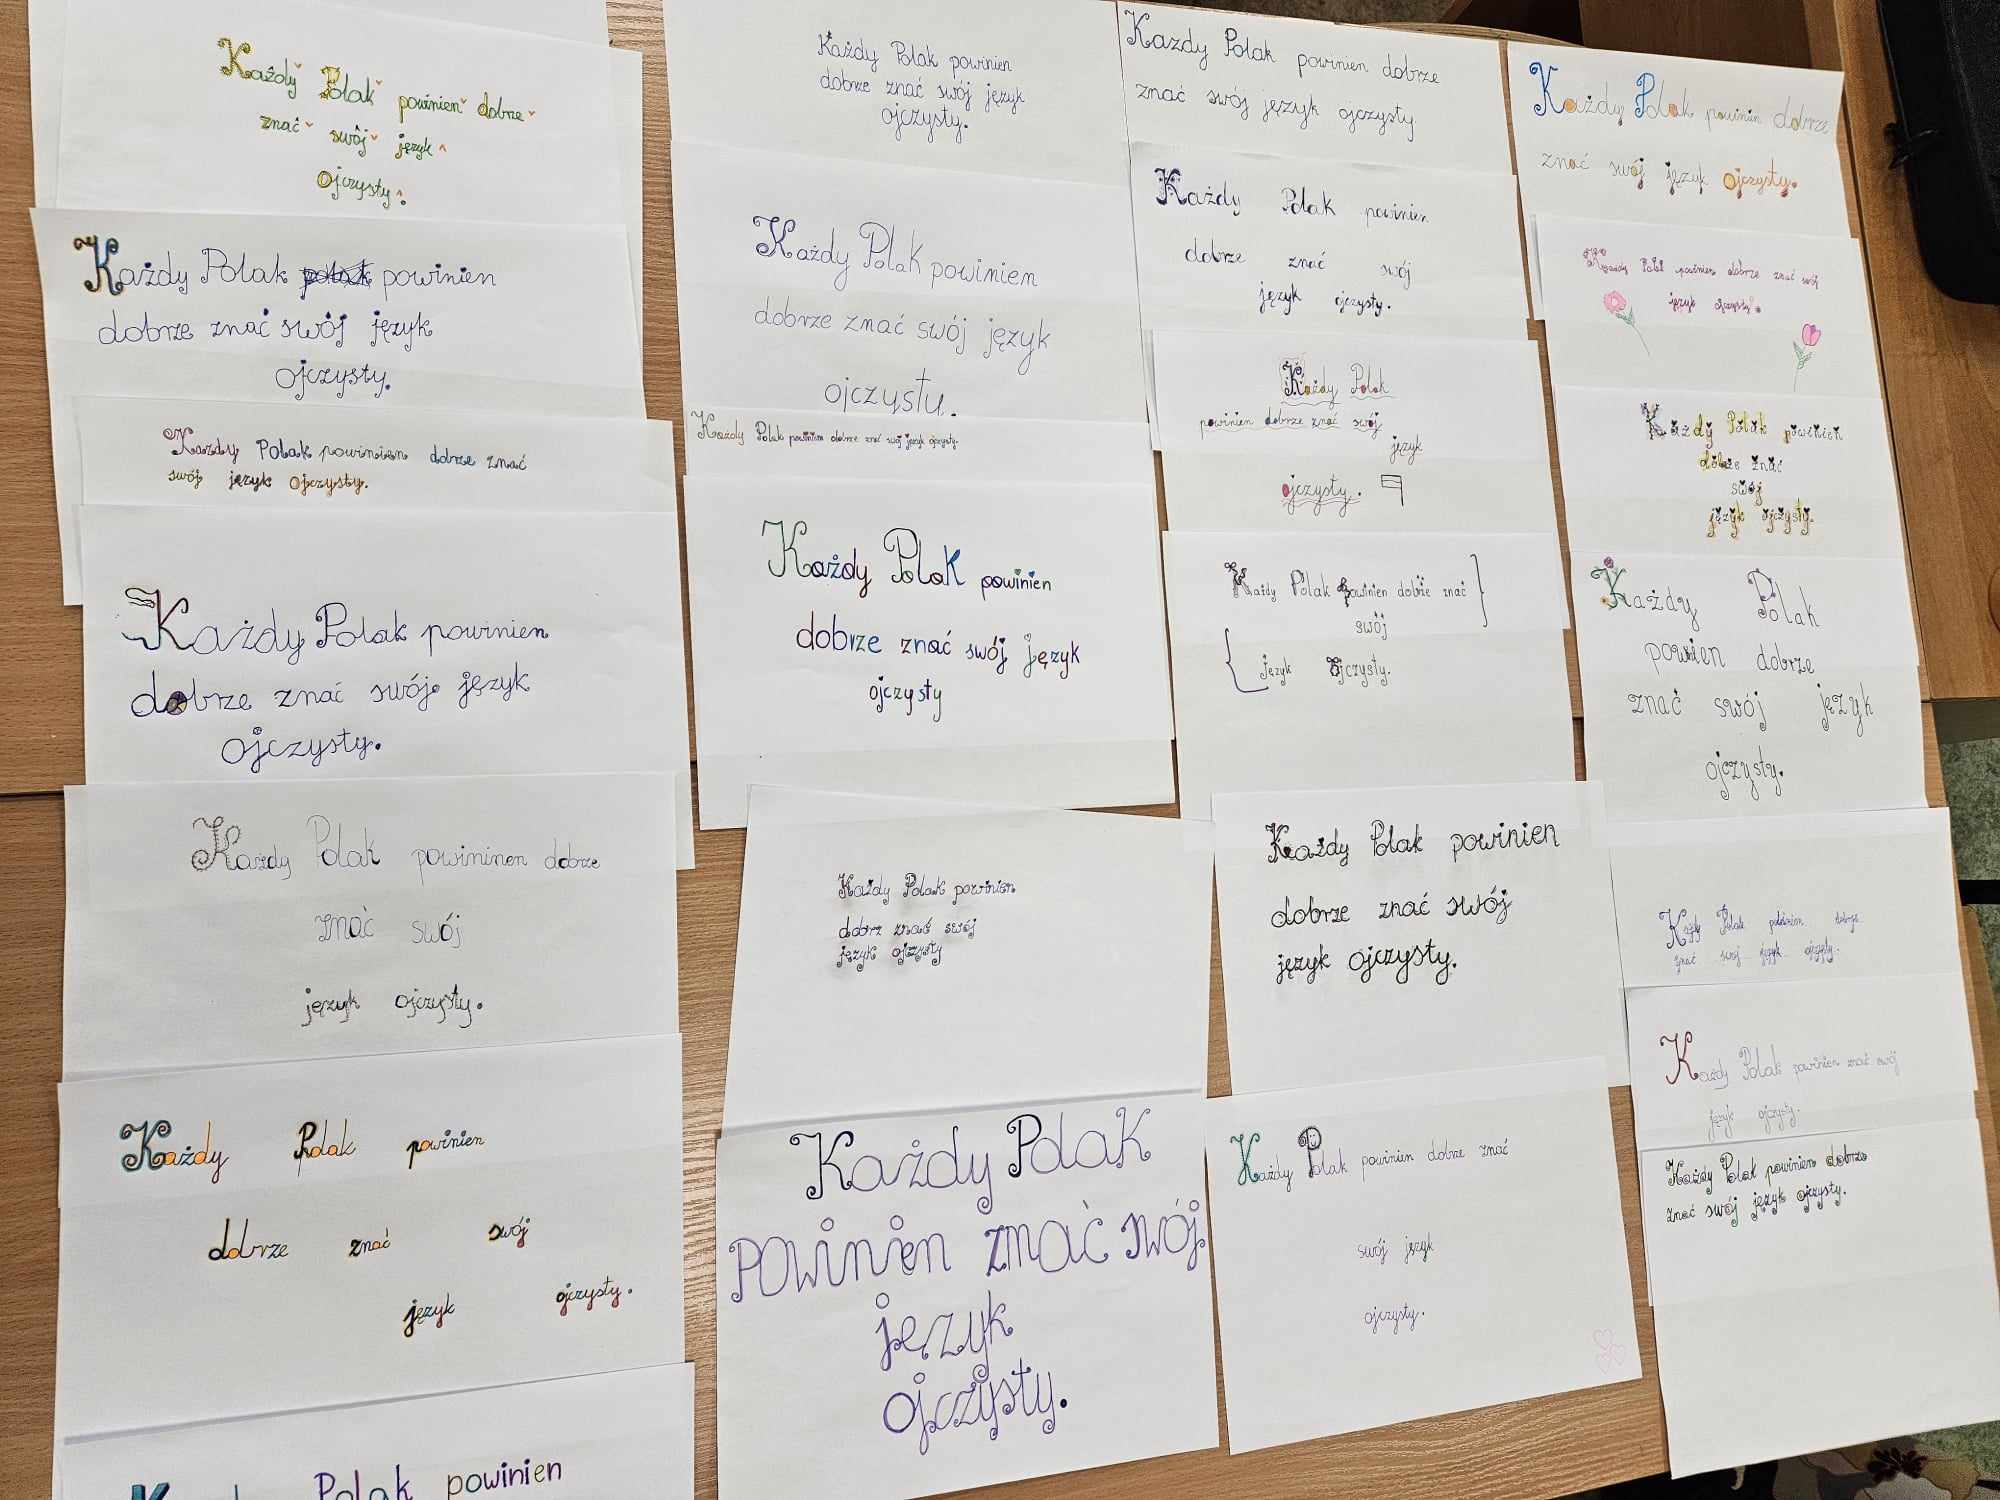 Każdy Polak powinien dobrze
znać swój język
ojczysty.
Każdy Polak polak powinien
dobrze znać swój język
ojczysty.
Każdy Polak powinien dobrze znać
swój język ojczysty.
Każdy Polak powinien
dobrze znać swój język
ojczysty.
Każdy Polak powininen dobrze
znać swój
język ojczysty.
Każdy Polak powinien
dobrze znać swój
język ojczysty.
Polak powinien
Każdy Polak powinien
dobrze znać swój język
ojczysty.
Każdy Polak powiniem
dobrze znać swój język
ojczysty.
Każdy Polak powinien dobrze znać swój język ojczysty.
Każdy Polak powinien
dobrze znać swój język
ojczysty
Każdy Polak powinien
dobrz znać swój
język ojczysty
Każdy Polak
powinien znać swój
język
ojczysty.
Kazdy Polak powinien dobrze
znać swój język ojczysty
Każdy Polak powinien
dobrze znać swój
język ojczysty.
Każdy Polak
powinien dobrze znać swój
język
ojczysty.
Każdy Polak powinien dobrze znać
swój
język ojczysty.
Każdy Polak powinien
dobrze znać swój
język ojczysty.
Każdy Polak powinien dobrze znać
swój język
ojczysty.
Każdy Polak powinien dobrze
znać swój język ojczysty.
Każdy Polak powinien dobrze znać swój
język ojczysty.
Każdy Polak powinien
dobrze znać
swój
język ojczysty.
Każdy Polak
powinien dobrze
znać swój język
ojczysty.
Polak powinien dobrze
znać swój język ojczysty.
Każdy Polak powinien znać swój
język ojczysty.
Każdy Polak powinien dobrze
znać swój język ojczysty.